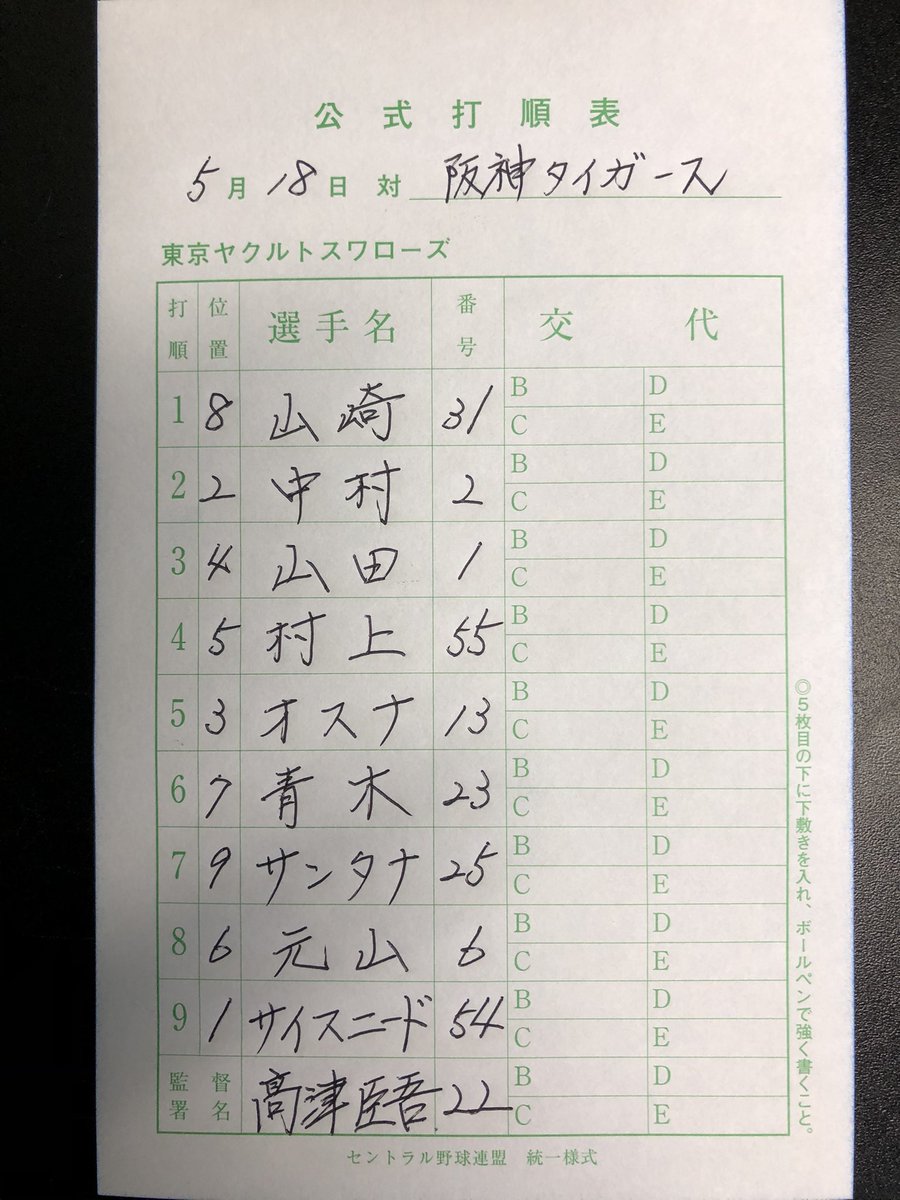 公式打順表
5月18日 対 阪神タイガース
東京ヤクルトスワローズ
打順 位置 選手名 番号 交代
1 8 山崎 31 B D C E
2 2 中村 2 B D C E
3 4 山田 1 B D C E
4 5 村上 55 B D C E
5 3 オスナ 13 B D C E
6 7 青木 23 B D C E
7 9 サンタナ 25 B D C E
8 6 元山 6 B D C E
9 1 サイスニード 54 B D C E
監督署名 高津臣吾 22 B D C E
◎5枚目の下に下敷きを入れ、ボールペンで強く書くこと。
セントラル野球連盟 統一様式